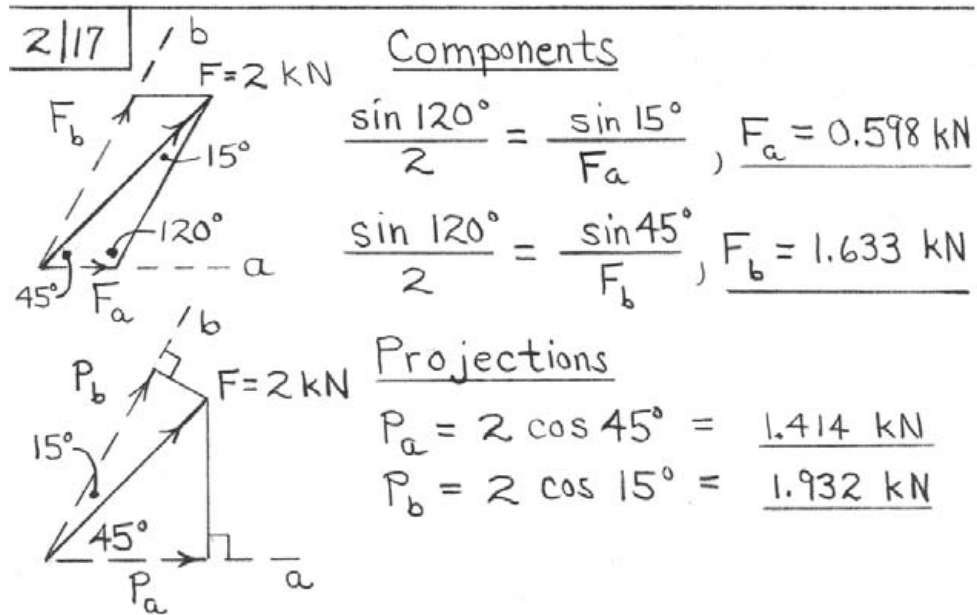 2/17
b
F = 2 kN
F_b
15°
120°
45°
F_a
a
Components
sin 120° / 2 = sin 15° / F_a , F_a = 0.598 kN
sin 120° / 2 = sin 45° / F_b , F_b = 1.633 kN
b
P_b
F = 2 kN
15°
45°
P_a
a
Projections
P_a = 2 cos 45° = 1.414 kN
P_b = 2 cos 15° = 1.932 kN